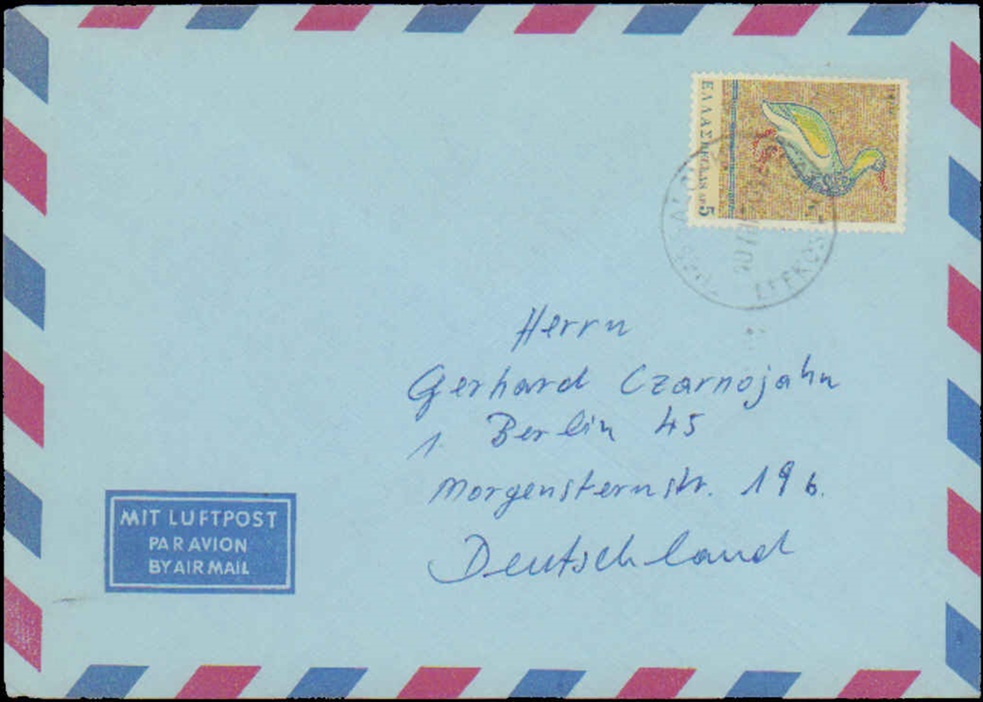 ΕΛΛΑΣ HELLAS ΔΡ 5
Herrn
Gerhard Czarnojahn
1 Berlin 45
Morgensternstr. 19 b.
Deutschland
MIT LUFTPOST
PAR AVION
BY AIR MAIL